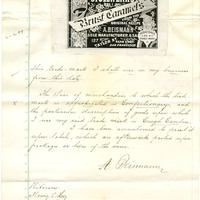 British Caramels
ORIGINAL RECIPE
A. BEISMANN
SOLE MANUFACTURER, U.S.A.
SAN FRANCISCO
This trade-mark I shall use in my business
from this date.
The class of merchandise to which the trade
mark is appropriated is Confectionery, and
the particular description of goods upon which
I use my said trade mark is Cough Caramels.
I have been accustomed to print it
upon labels, which are afterwards pasted upon
package or box of the same.
A. Beismann
Witnesses